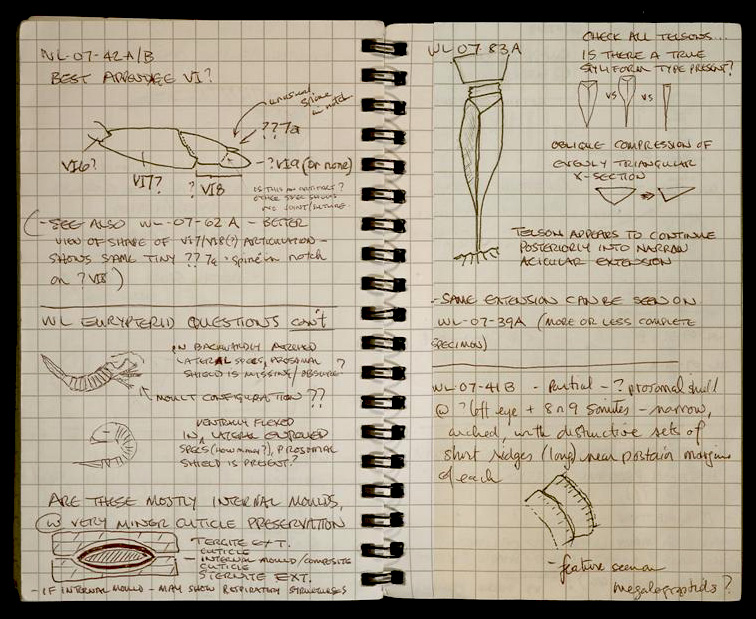 WL-07-42A/B
BEST APPENDAGE VI?
UNUSUAL SPINE
IN NOTCH
??7a
VI6?
VI7?
?
VI8
-?VI9 (OR NONE)
IS THIS AN ARTIFACT?
OTHER SPEC SHOWS
NO JOINT/SUTURE
(-SEE ALSO WL-07-62A - BETTER
VIEW OF SHAPE OF VI7/VI8(?) ARTICULATION -
SHOWS SAME TINY ??7a - SPINE IN NOTCH
ON ?VI8)
WL EURYPTERID QUESTIONS con't
IN BACKWARDLY ARCHED
LATERAL SPECS, PROSOMAL
SHIELD IS MISSING/OBSCURE?
MOULT CONFIGURATION??
VENTRALLY FLEXED
IN LATERAL ENROLLED
SPECS (HOW MANY?), PROSOMAL
SHIELD IS PRESENT?
ARE THESE MOSTLY INTERNAL MOULDS,
W VERY MINOR CUTICLE PRESERVATION
TERGITE EXT.
CUTICLE
INTERNAL MOULD/COMPOSITE
CUTICLE
STERNITE EXT.
- IF INTERNAL MOULD - MAY SHOW RESPIRATORY STRUCTURES
WL-07-83A
CHECK ALL TELSONS...
IS THERE A TRUE
STYLIFORM TYPE PRESENT?
VS VS
OBLIQUE COMPRESSION OF
EVENLY TRIANGULAR
X-SECTION
TELSON APPEARS TO CONTINUE
POSTERIORLY INTO NARROW
ACICULAR EXTENSION
-SAME EXTENSION CAN BE SEEN ON
WL-07-39A (MORE OR LESS COMPLETE
SPECIMEN)
WL-07-41B - Partial - ? prosomal shell
@ ? left eye + 8 or 9 somites - narrow,
arched, with distinctive sets of
short ridges (long) near postern margins
of each
- feature seen on
megalograptids?